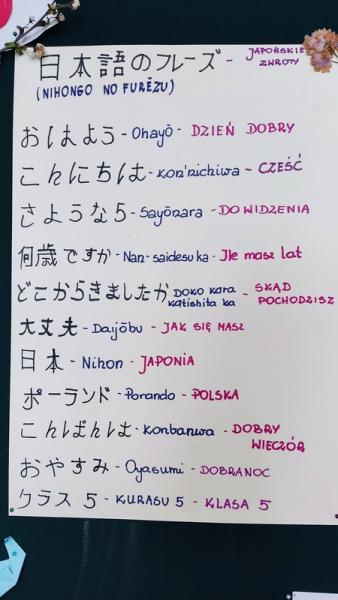 日本語のフレーズ - JAPOŃSKIE ZWROTY
(NIHONGO NO FURĒZU)
おはよう - Ohayō - DZIEŃ DOBRY
こんにちは - Kon'nichiwa - CZEŚĆ
さようなら - Sayōnara - DO WIDZENIA
何歳ですか - Nan-saidesu ka - Ile masz lat
どこからきましたか DOKO KARA Katishita ka - SKĄD POCHODZISZ
大丈夫 - Daijōbu - JAK SIĘ MASZ
日本 - Nihon - JAPONIA
ポーランド - Porando - POLSKA
こんばんは - Konbanwa - DOBRY WIECZÓR
おやすみ - Oyasumi - DOBRANOC
クラス 5 - KURASU 5 - KLASA 5